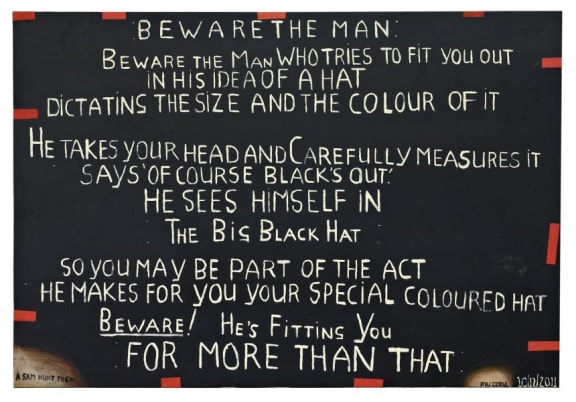 BEWARE THE MAN:
BEWARE THE MAN WHO TRIES TO FIT YOU OUT
IN HIS IDEA OF A HAT
DICTATING THE SIZE AND THE COLOUR OF IT
HE TAKES YOUR HEAD AND CAREFULLY MEASURES IT
SAYS 'OF COURSE BLACK'S OUT!'
HE SEES HIMSELF IN
THE BIG BLACK HAT
SO YOU MAY BE PART OF THE ACT
HE MAKES FOR YOU YOUR SPECIAL COLOURED HAT
BEWARE! HE'S FITTING YOU
FOR MORE THAN THAT
A SAM HUNT POEM
FRIZZELL